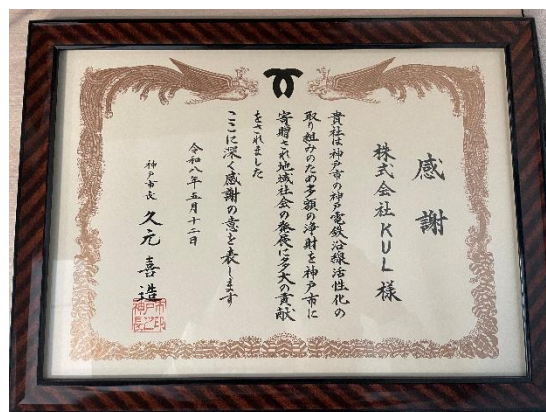 感謝
株式会社KUL様
貴社は神戸市の神戸電鉄沿線活性化の
取り組みのため多額の浄財を神戸市に
寄贈され地域社会の発展に多大の貢献
をされました
ここに深く感謝の意を表します
令和八年五月十二日
神戸市長 久元喜造
神戸市長之印